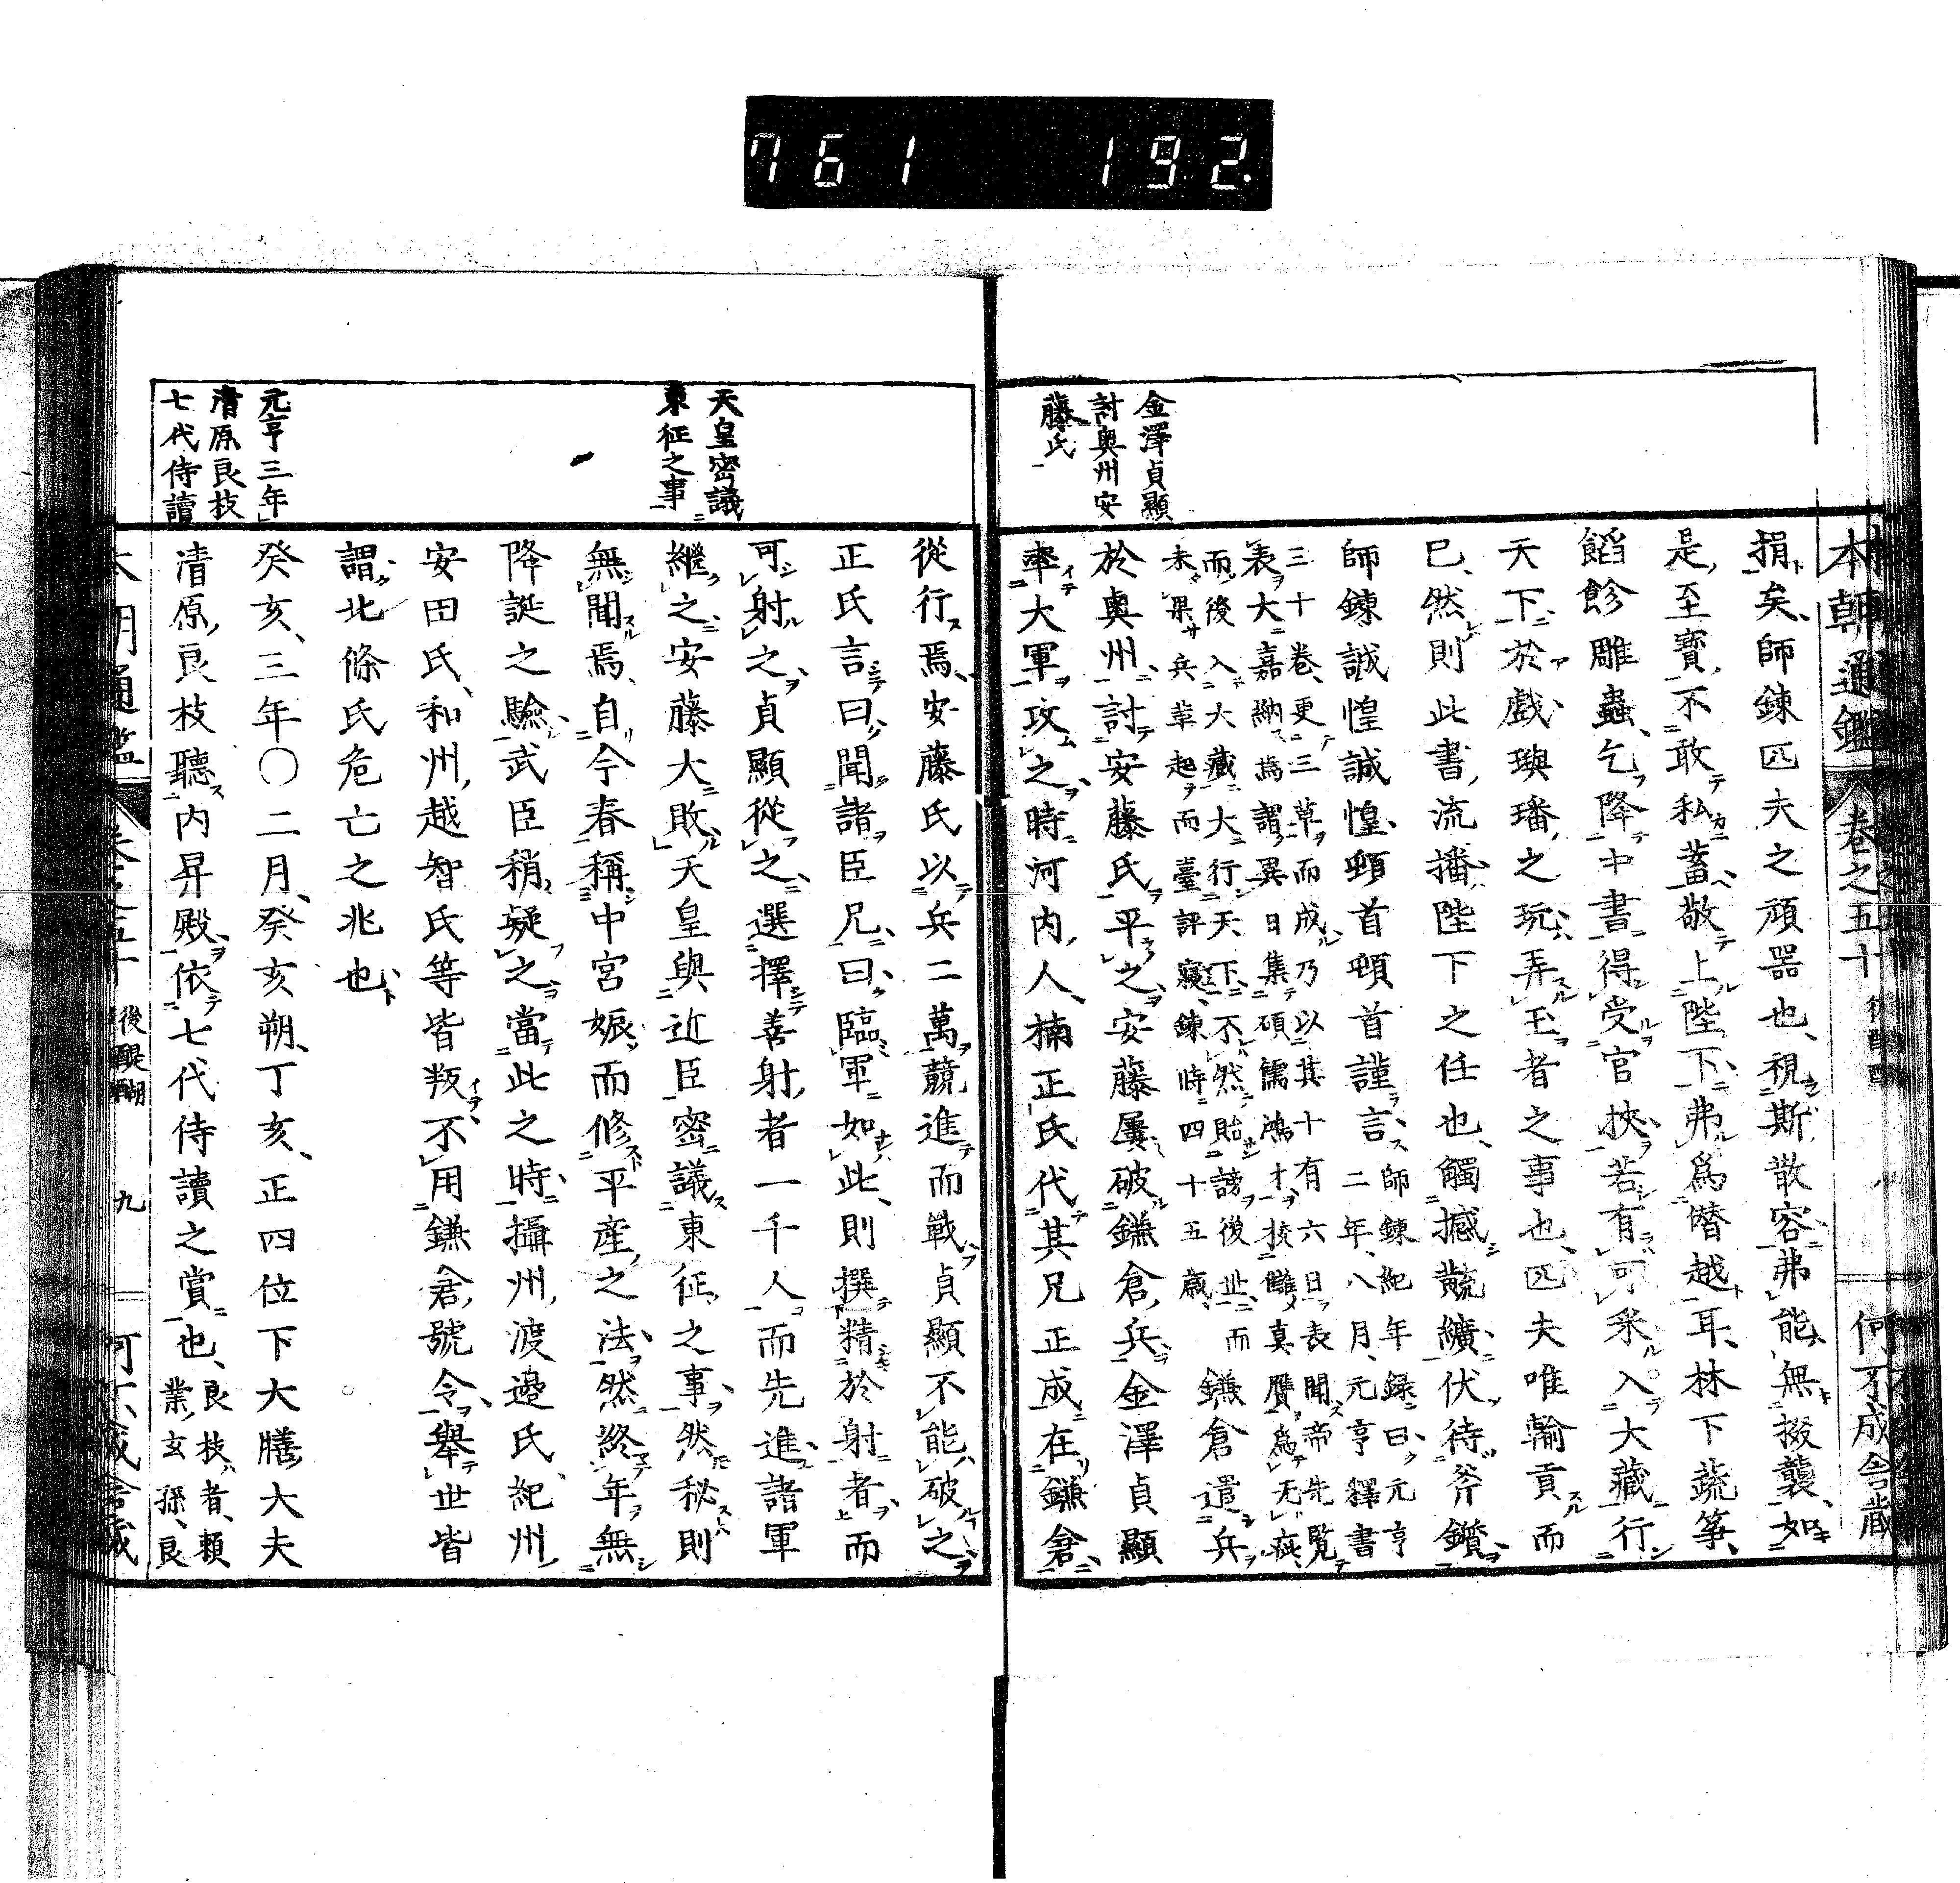 761 192.
本朝通鑑 卷之五十 後醍醐 八 何不成舍藏
金澤貞顯
討奧州安
藤氏
捐矣、師鍊匹夫之頑器也、視斯散容弗能無掇襲、如
是至寶、不敢私蓄、敬上陛下、弗爲僭越耳、林下蔬筝、
餡飻雕蟲、乞降中書、得受官挾、若有可采、入大藏行
天下、於戲璵璠之玩弄、王者之事也、匹夫唯輸貢而
已、然則此書流播、陛下之任也、觸撼黈纊、伏待斧鑕、
師鍊誠惶誠惶、頓首頓首謹言、
師鍊紀年錄曰、元亨
二年、八月、元亨釋書
三十卷、更三草而成、乃以其十有六日表聞帝先覧
表大嘉納、爲謂異日集碩儒鴻才、挍讎真贋、爲无疵、
而後入大藏大行天下、不然貽謗後世、而
未果兵革起而臺評寢、鍊時四十五歲、
鎌倉遣兵
於奧州、討安藤氏平之、安藤屢破鎌倉兵、金澤貞顯
率大軍攻之、時河内人、楠正氏代其兄正成在鎌倉、
從行焉、安藤氏以兵二萬競進而戰、貞顯不能破之、
正氏言曰、聞諸臣兄、曰、臨軍如此、則撰精於射者、而
可射之、貞顯從之、選擇善射者一千人而先進、諸軍
天皇密議
東征之事
繼之、安藤大敗、天皇與近臣密議東征之事、然秘則
無聞焉、自今春稱中宮娠、而修平産之法、然終年無
降誕之驗、武臣稍疑之、當此之時、攝州渡邉氏、紀州
安田氏、和州越智氏等皆叛、不用鎌倉號令、舉世皆
謂北條氏危亡之兆也、
元亨三年
癸亥、三年〇二月、癸亥朔、丁亥、正四位下大膳大夫
清原良枝
七代侍讀
清原良枝聽内昇殿、依七代侍讀之賞也、
良枝者、賴
業玄孫、良
本朝通鑑 卷之五十 後醍醐 九 何不成舍藏